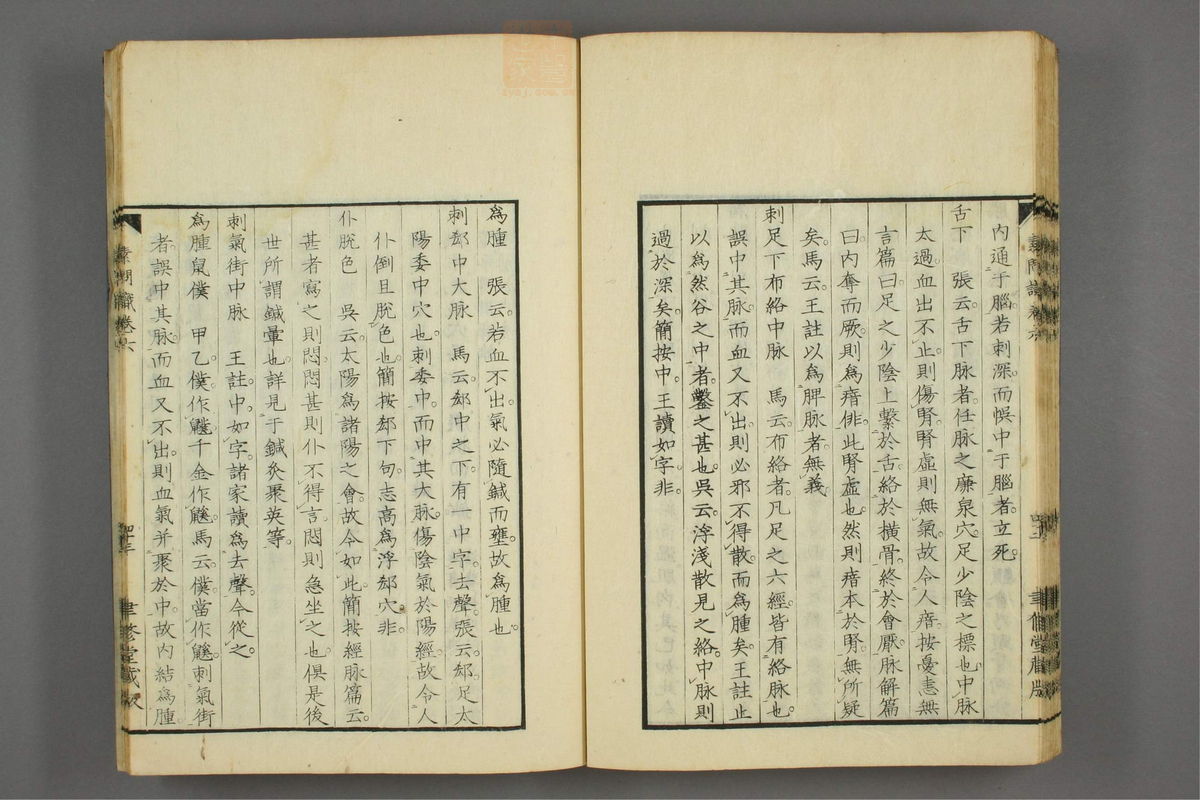 內通于腦若刺深而悞中于腦者立死
舌下　張云舌下脉者任脉之廉泉穴足少陰之標也中脉
太過血出不止則傷腎腎虛則無氣故令人瘖按憂恚無
言篇曰足之少陰上繫於舌絡於橫骨終於會厭脉解篇
曰內奪而厥則爲瘖俳此腎虛也然則瘖本於腎無所疑
矣馬云王註以爲脾脉者無義
刺足下布絡中脉　馬云布絡者凡足之六經皆有絡脉也
誤中其脉而血又不出則必邪不得散而爲腫矣王註止
以爲然谷之中者鑿之甚也吳云浮淺散見之絡中脉則
過於深矣簡按中王讀如字非
爲腫　張云若血不出氣必隨鍼而壅故爲腫也
刺郄中大脉　馬云郄中之下有一中字去聲張云郄足太
陽委中穴也刺委中而中其大脉傷陰氣於陽經故令人
仆倒且脫色也簡按郄下句志高爲浮郄穴非
仆脫色　吳云太陽爲諸陽之會故令如此簡按經脉篇云
甚者寫之則悶悶甚則仆不得言悶則急坐之也俱是後
世所謂鍼暈也詳見于鍼灸聚英等
刺氣街中脉　王註中如字諸家讀爲去聲今從之
爲腫鼠僕　甲乙僕作鼷千金作鼷馬云僕當作鼷刺氣街
者誤中其脉而血又不出則血氣并聚於中故內結爲腫
素問識卷六
四十三
聿修堂藏版